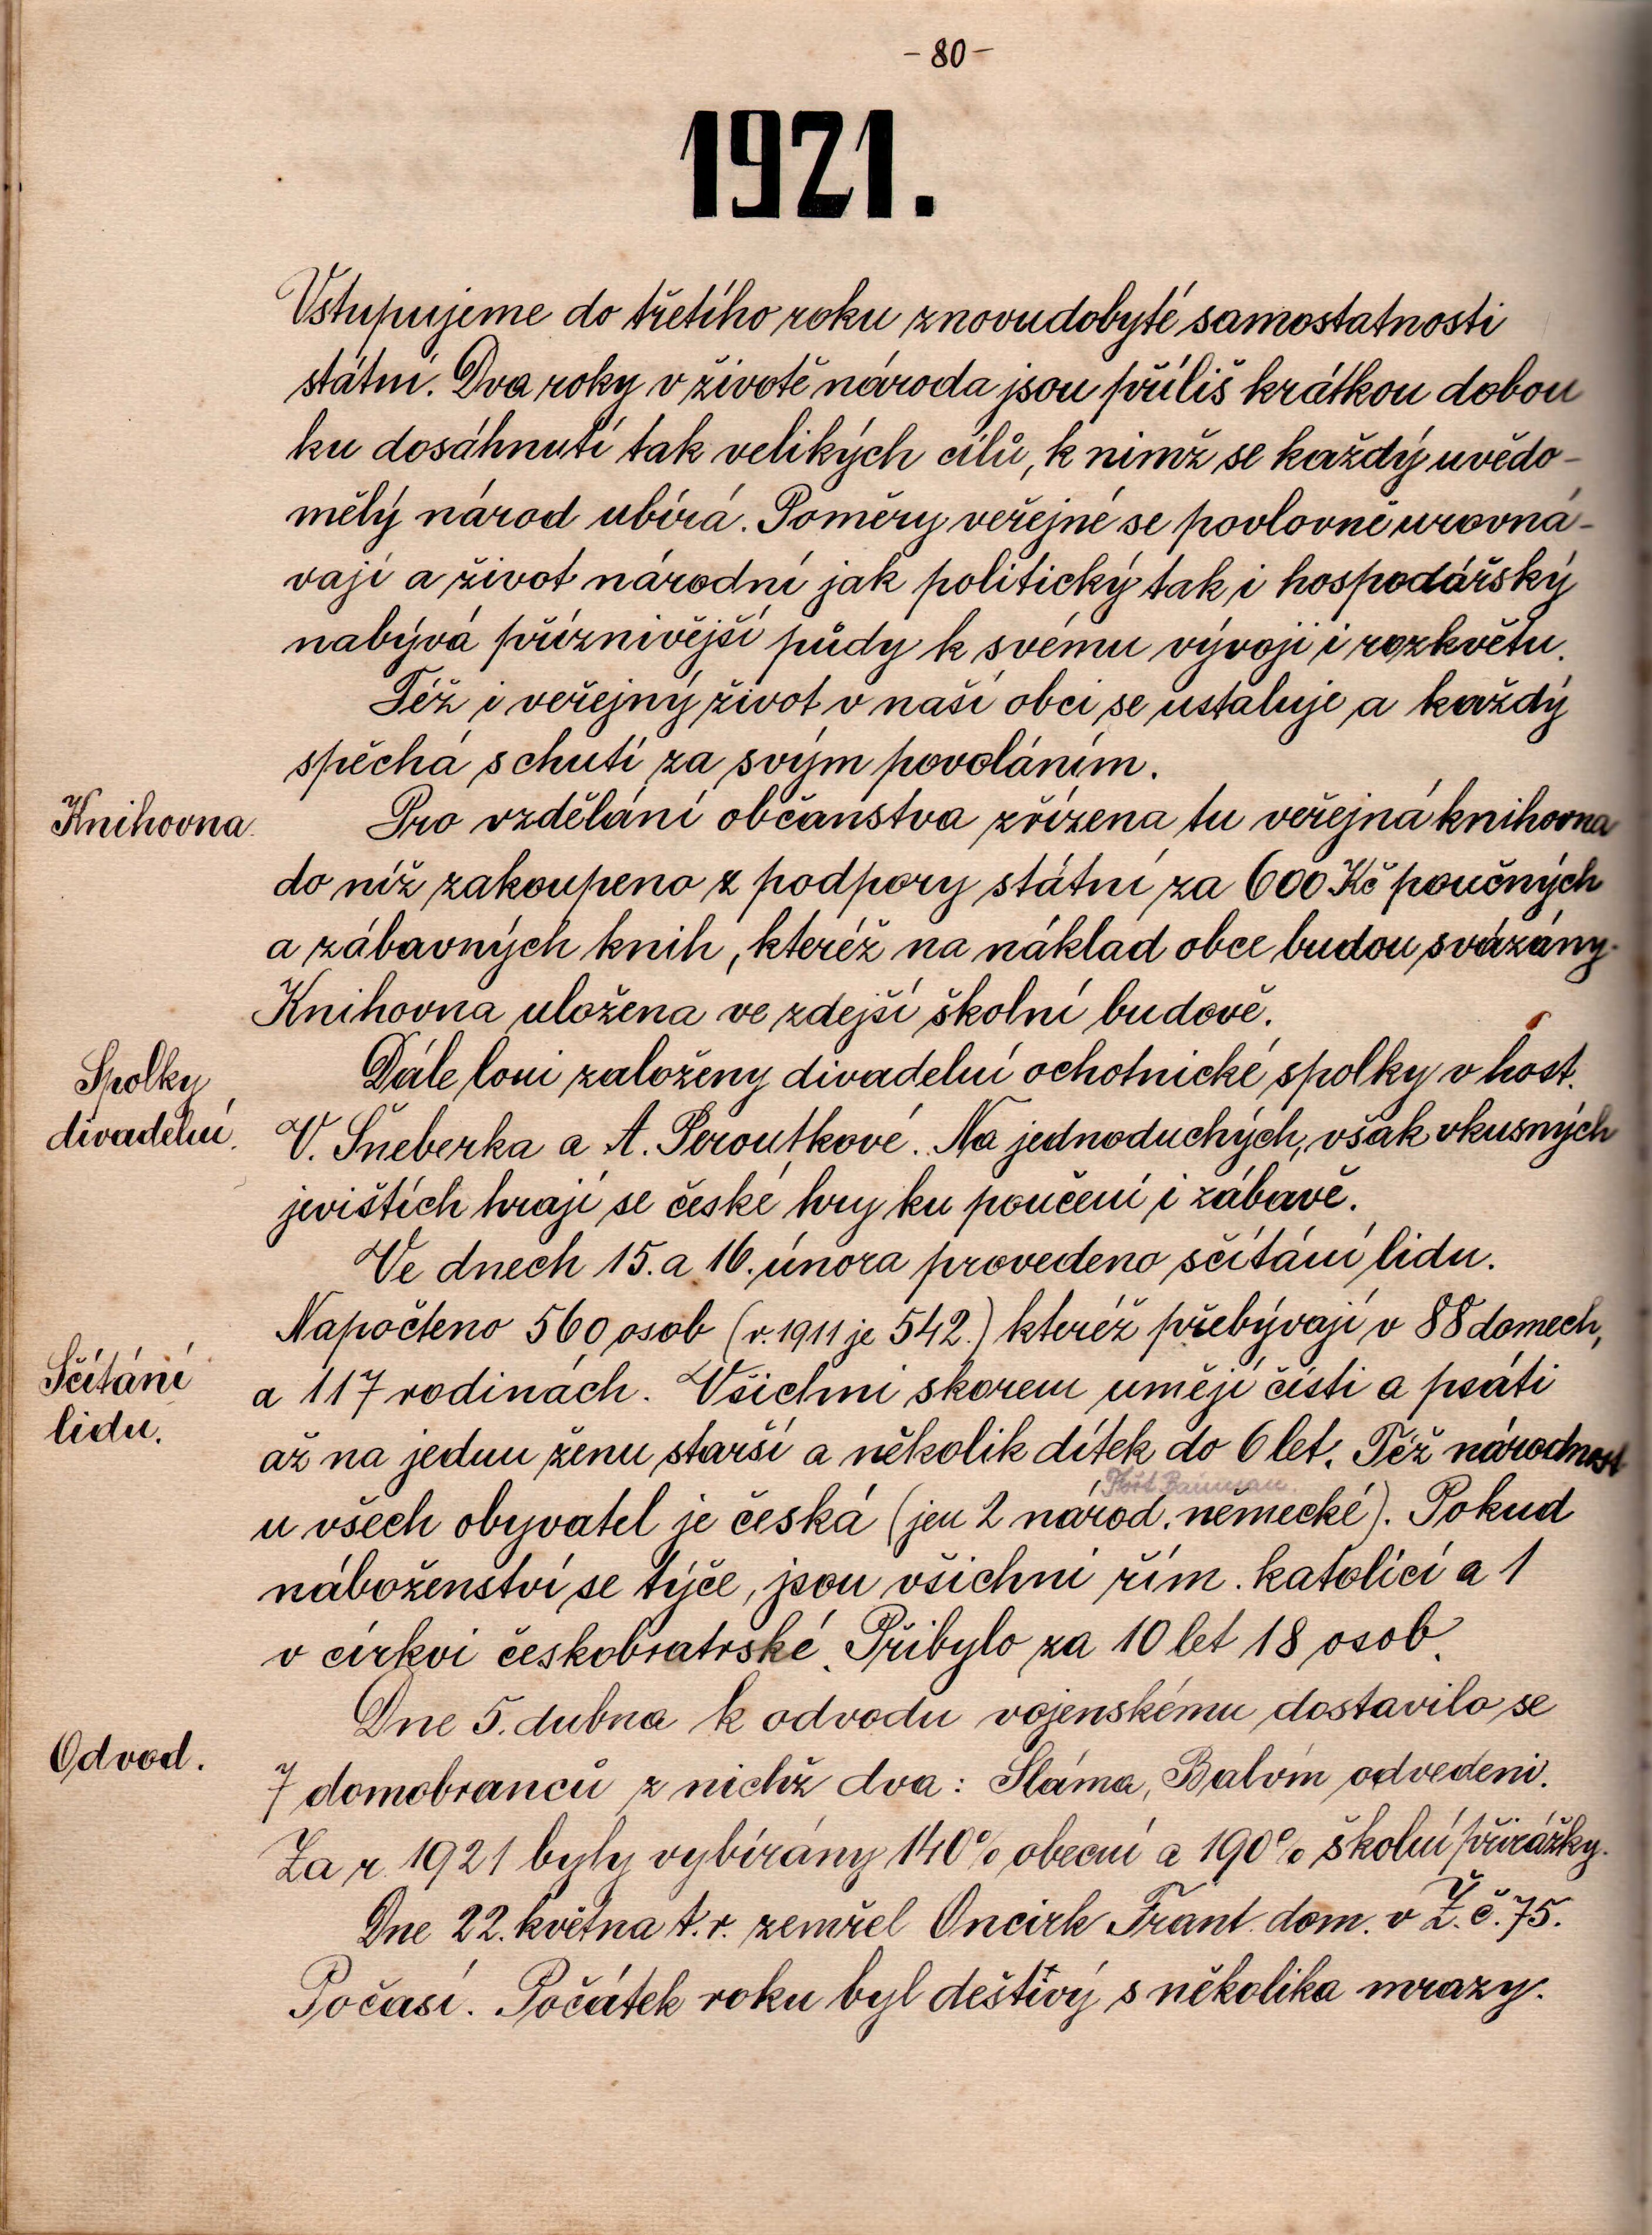 - 80 -
1921.
Vstupujeme do třetího roku znovudobyté samostatnosti
státní. Dva roky v životě národa jsou příliš krátkou dobou
ku dosáhnutí tak velikých cílů, k nimž se každý uvědo-
mělý národ ubírá. Poměry veřejné se povlovně urovná-
vají a život národní jak politický tak i hospodářský
nabývá příznivější půdy k svému vývoji i rozkvětu.
Též i veřejný život v naší obci se ustaluje a každý
spěchá s chutí za svým povoláním.
Knihovna.
Pro vzdělání občanstva zřízena tu veřejná knihovna
do níž zakoupeno z podpory státní za 600 Kč poučných
a zábavných knih, kteréž na náklad obce budou svázány.
Knihovna uložena ve zdejší školní budově.
Spolky
divadelní.
Dále loni založeny divadelní ochotnické spolky v host.
V. Šneberka a A. Peroutkové. Na jednoduchých, však vkusných
jevištích hrají se české hry ku poučení i zábavě.
Ve dnech 15. a 16. února provedeno sčítání lidu.
Napočteno 560 osob (r. 1911 je 542.) kteréž přebývají v 88 domech,
Sčítání
lidu.
a 117 rodinách. Všichni skorem umějí čísti a psáti
až na jednu ženu starší a několik dítek do 6 let. Též národnost
u všech obyvatel je česká (jen 2 národ. německé). Pokud
náboženství se týče, jsou všichni řím. katolíci a 1
v církvi českobratrské. Přibylo za 10 let 18 osob.
Odvod.
Dne 5. dubna k odvodu vojenskému dostavilo se
7 domobranců z nichž dva: Sláma, Balvín odvedeni.
Za r. 1921 byly vybírány 140% obecní a 190% školní přirážky.
Dne 22. května t. r. zemřel Oncirk Frant. dom. v Ž. č. 75.
Počasí. Počátek roku byl deštivý s několika mrazy.